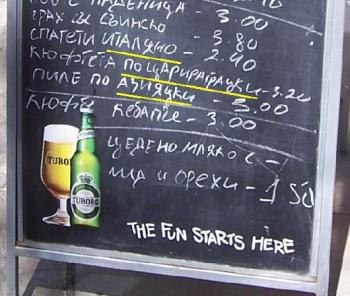 ПАДЕНИЦА - 3.00
ГРАХ ЗА СВИНСКО
СПАГЕТИ ИТАЛЯНО - 3.80
КЮФТЕТА ПО ЦАРИГРАДЦКИ - 3.20
2.40
ПИЛЕ ПО АЗИЯЦКИ - 3.00
КЮФТЕ КЕБАПЧЕ - 3.00
ЦЕДЕНО МЛЯКО С -
И ОРЕХИ - 1
TUBORG
TUBORG
THE FUN STARTS HERE